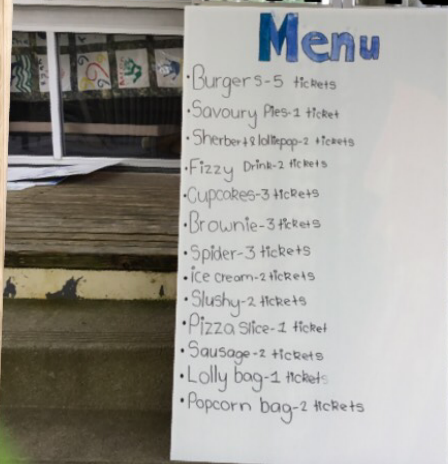 Menu
• Burgers-5 tickets
• Savoury Pies-1 ticket
• Sherbert & lolliepop-2 tickets
• Fizzy Drink-2 tickets
• Cupcakes-3 tickets
• Brownie-3 tickets
• Spider-3 tickets
• ice cream-2 tickets
• Slushy-2 tickets
• Pizza slice-1 ticket
• Sausage-2 tickets
• Lolly bag-1 tickets
• Popcorn bag-2 tickets